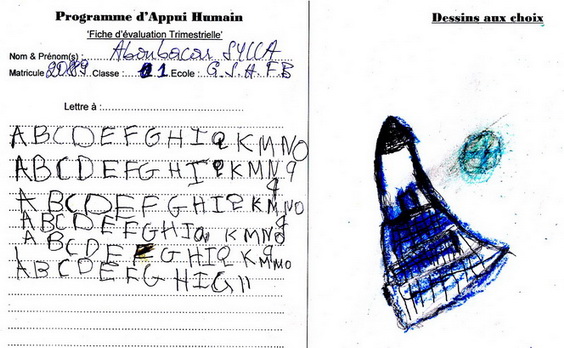 Programme d'Appui Humain
'Fiche d'évaluation Trimestrielle'
Nom & Prénom(s) : Aboubacar SYLLA
Matricule : Classe : 1 Ecole : G.S.H.F.B
Lettre à :
A B C D E F G H I Q K M N O
A B C D E F G H I Q K M N 9
A B C D E F G H I Q K M N O
A B C D E F G H I Q K M N 9
A B C D E E G H I Q K M M O
A B C D E F G H I G
Dessins aux choix